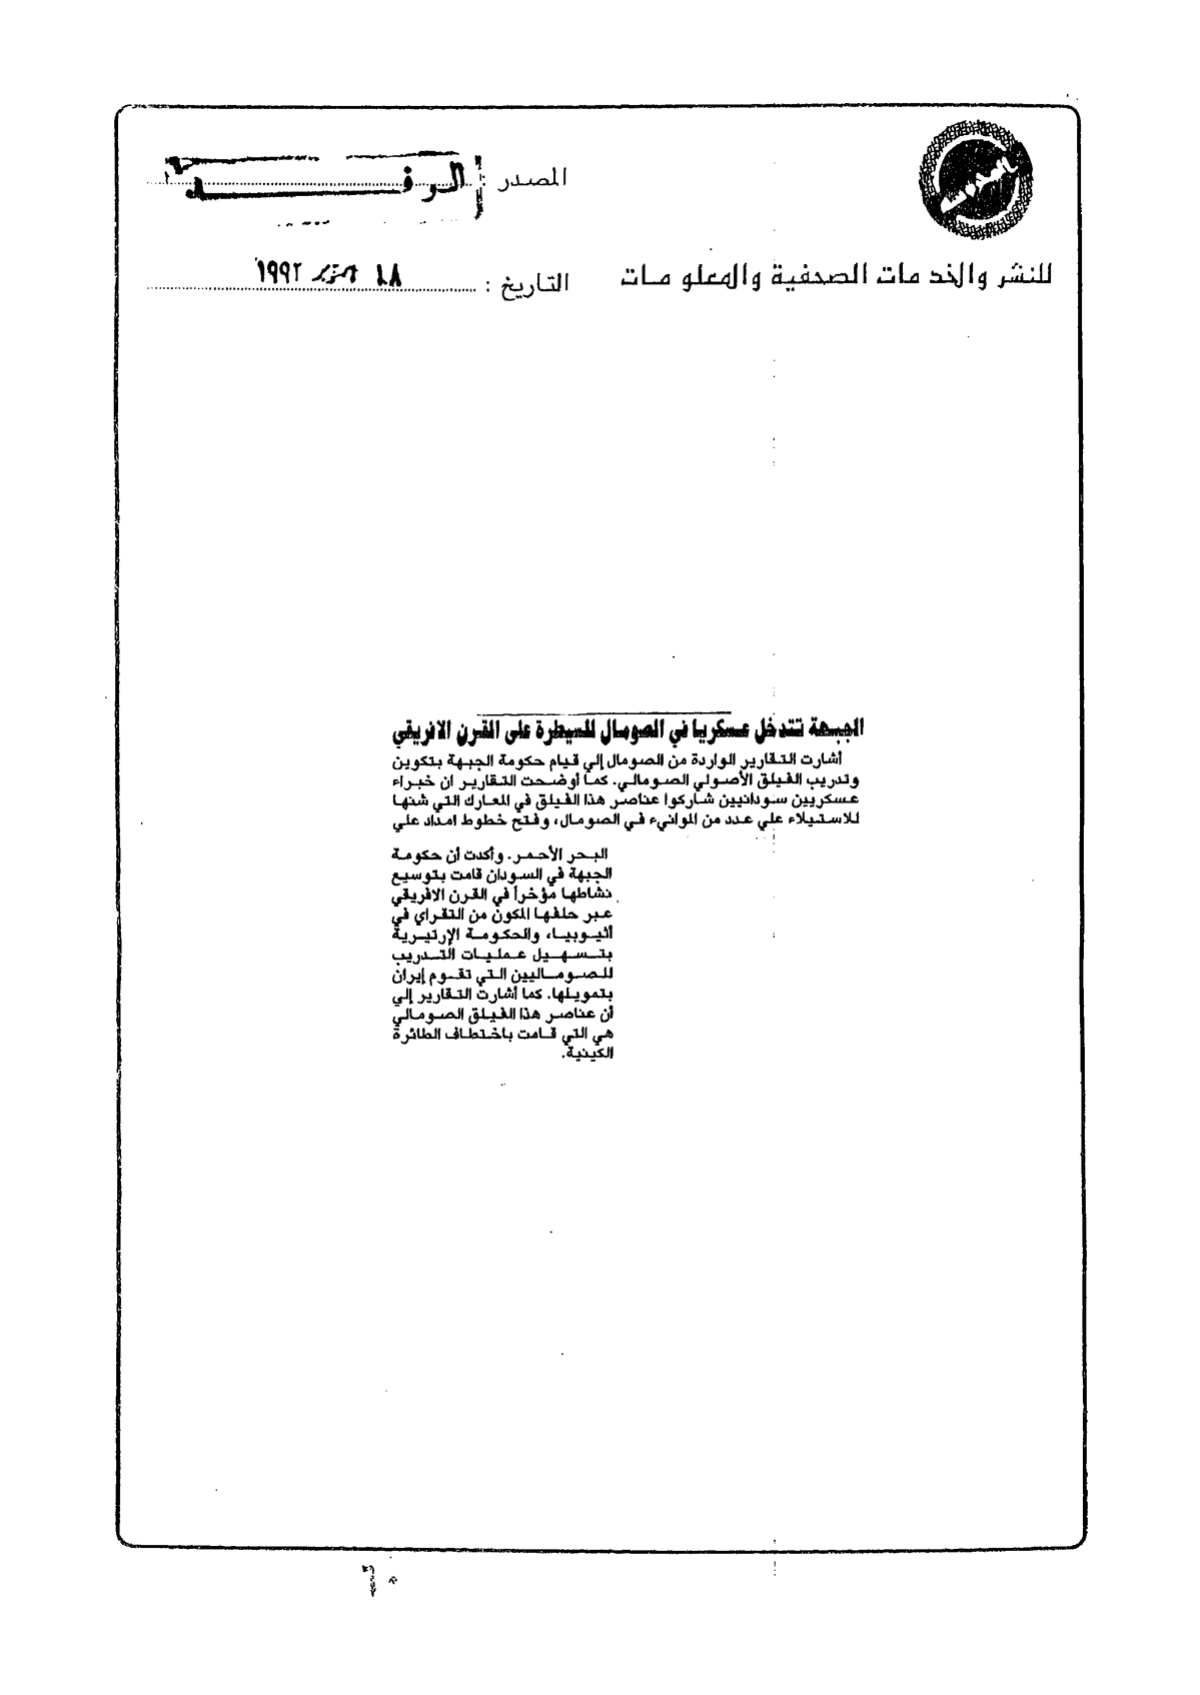 المصدر : الوفد
للنشر والخدمات الصحفية والمعلومات
التاريخ : ١٩٩٢
الجبهة تتدخل عسكريا في الصومال للسيطرة على القرن الافريقي
أشارت التقارير الواردة من الصومال إلي قيام حكومة الجبهة بتكوين
وتدريب الفيلق الأصولي الصومالي. كما أوضحت التقارير ان خبراء
عسكريين سودانيين شاركوا عناصر هذا الفيلق في المعارك التي شنها
للاستيلاء علي عدد من الموانيء في الصومال، وفتح خطوط امداد علي
البحر الأحمر. وأكدت أن حكومة
الجبهة في السودان قامت بتوسيع
نشاطها مؤخراً في القرن الافريقي
عبر حلفها المكون من التقراي في
أثيوبيا، والحكومة الإرتيرية
بتسهيل عمليات التدريب
للصوماليين التي تقوم إيران
بتمويلها. كما أشارت التقارير إلي
أن عناصر هذا الفيلق الصومالي
هي التي قامت باختطاف الطائرة
الكينية.